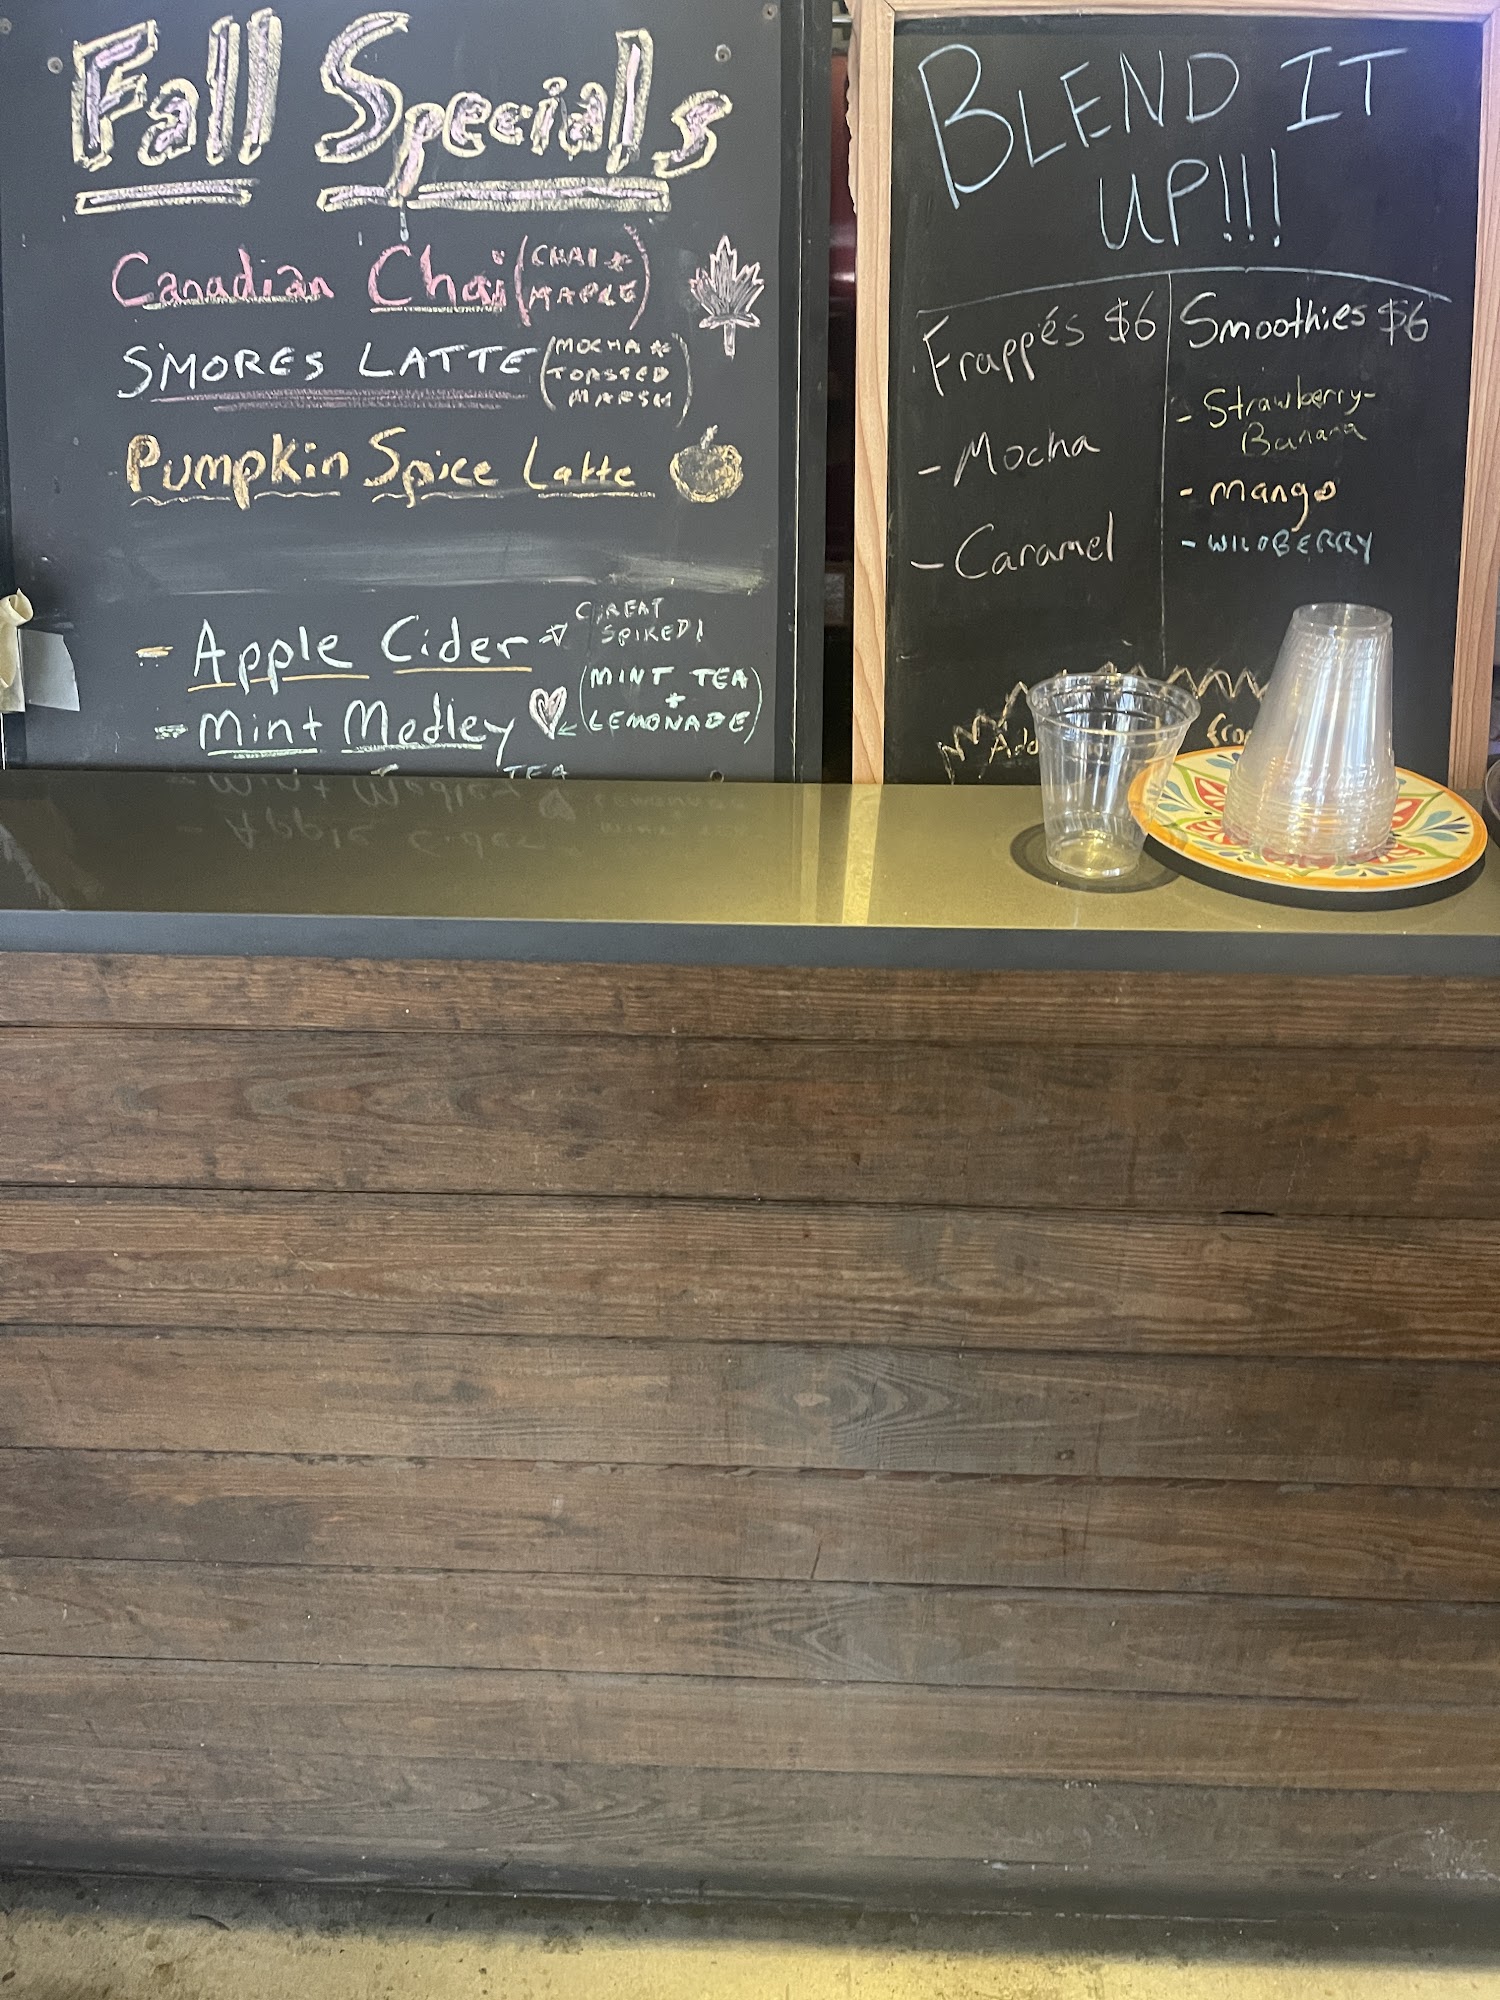 Fall Specials
Canadian Chai (CHAI +
MAPLE)
S'MORES LATTE (MOCHA +
TOASTED
MARSH)
Pumpkin Spice Latte
- Apple Cider → GREAT
SPIKED!
- Mint Medley (MINT TEA
+
LEMONADE)
BLEND IT
UP!!!
Frappés $6
- Mocha
- Caramel
Smoothies $6
- Strawberry-
Banana
- Mango
- WILDBERRY
Add